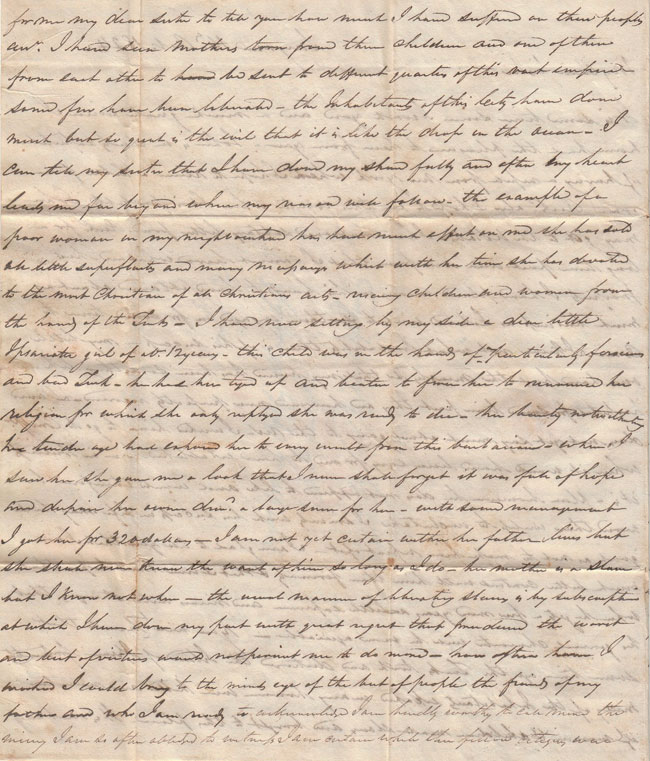 for me my dear sister to tell you how much I have suffered on these peoples
acct. I have seen mothers torn from their children and one of them
from each other to have be sent to different quarters of this vast empire
some few have been liberated - the Inhabitants of this city have done
much but so great is the evil that it is like the drop in the ocean - I
can tell my sister that I have done my share fully and often my heart
leads me far beyond where my reason will follow - the example of a
poor woman in my neighbourhood has had much effect on me she has sold
all little superfluits and many which with her time she has devoted
to the most Christian of all christians acts - rescuing children and women from
the hands of the Turks - I have now setting by my side a dear little
Ipsariote girl of abt. 12 years - this child was in the hands of particularly ferocious
and bad Turk - he has her tyed up and beaten to force her to renounce her
religion for which she only replyed she was ready to die - her beauty notwithstanding
her tender age had exposed her to every insult from this barbarian - when I
saw her she gave me a look that I never shall forget it was full of hope
and despair her owner a large sum for her - with some management
I got her for 320 dollars - I am not yet certain wither her father lives but
she shall never know the want of him so long as I do - her mother is a slave
but I know not where - the usual manner of liberating slaves is by subscription
at which I have done my part with great regret that prudence the worst
and best of virtues would not permit me to do more - how often have I
wished I could bring to the minds eye of the best of people the friends of my
father and who I am ready to acknowledge I am hardly worthy to the
misery I am so often obliged to witness I am certain while their fellow citizens were